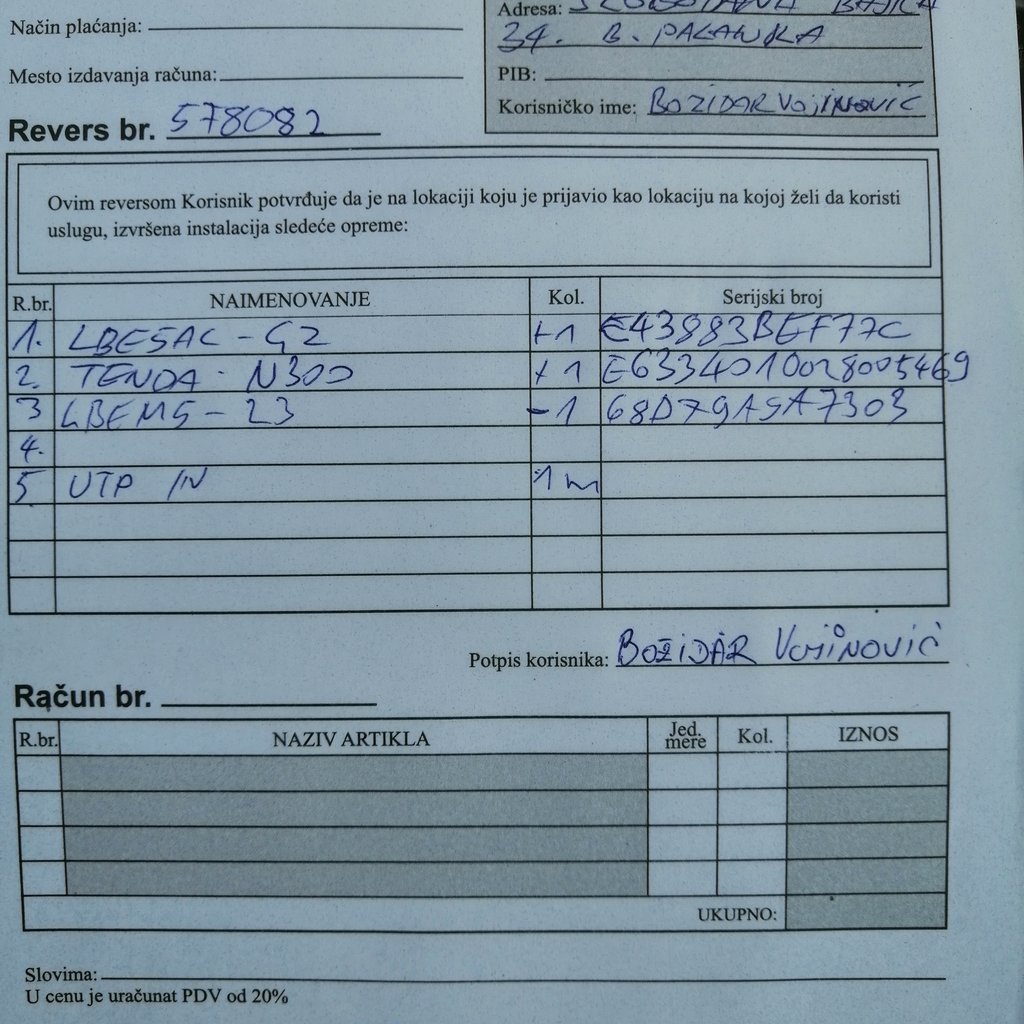 Adresa:
Način plaćanja:
34. B. PALANKA
Mesto izdavanja računa:
PIB:
Korisničko ime: BOZIDAR VOJINOVIĆ
Revers br. 578082
Ovim reversom Korisnik potvrđuje da je na lokaciji koju je prijavio kao lokaciju na kojoj želi da koristi
uslugu, izvršena instalacija sledeće opreme:
R.br. NAIMENOVANJE Kol. Serijski broj
1. LBE5AC-G2 +1 E43883BEF77C
2. TENDA - N300 +1 E6334010028005469
3 LBEM5-23 -1 68D79A5A7303
4.
5 UTP IN 1m
Potpis korisnika: BOŽIDAR VOJINOVIĆ
Račun br.
R.br. NAZIV ARTIKLA Jed. mere Kol. IZNOS
UKUPNO:
Slovima:
U cenu je uračunat PDV od 20%